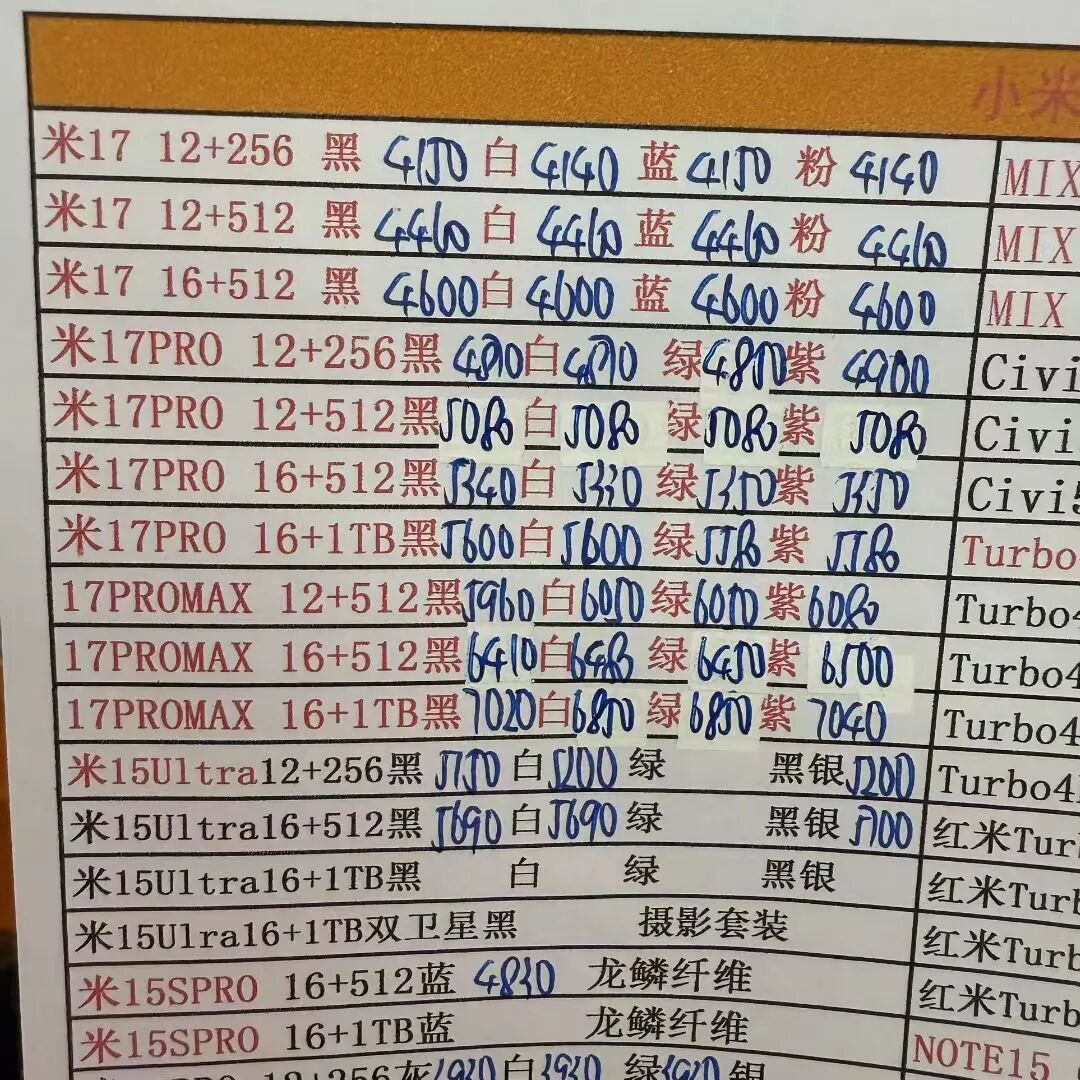 小米
米17 12+256 黑 4150 白 4140 蓝 4150 粉 4140 MIX
米17 12+512 黑 4460 白 4460 蓝 4460 粉 4460 MIX
米17 16+512 黑 4600 白 4600 蓝 4600 粉 4600 MIX
米17PRO 12+256黑 白 绿 4850 紫 4900 Civi
米17PRO 12+512黑 5080 白 5080 绿 5080 紫 5080 Civi
米17PRO 16+512黑 5340 白 5330 绿 5350 紫 5350 Civi5
米17PRO 16+1TB黑 5600 白 5600 绿 5580 紫 5580 Turbo
17PROMAX 12+512黑 5960 白 6050 绿 6050 紫 6080 Turbo4
17PROMAX 16+512黑 6410 白 6480 绿 6450 紫 6500 Turbo4
17PROMAX 16+1TB黑 7020 白 6850 绿 6850 紫 7040 Turbo4
米15Ultra12+256黑 5150 白 5200 绿 黑银 5200 Turbo4
米15Ultra16+512黑 5690 白 5690 绿 黑银 5700 红米Tur
米15Ultra16+1TB黑 白 绿 黑银 红米Tur
米15Ulra16+1TB双卫星黑 摄影套装 红米Turb
米15SPRO 16+512蓝 4830 龙鳞纤维 红米Tur
米15SPRO 16+1TB蓝 龙鳞纤维 NOTE15
12+256灰 白 绿 银